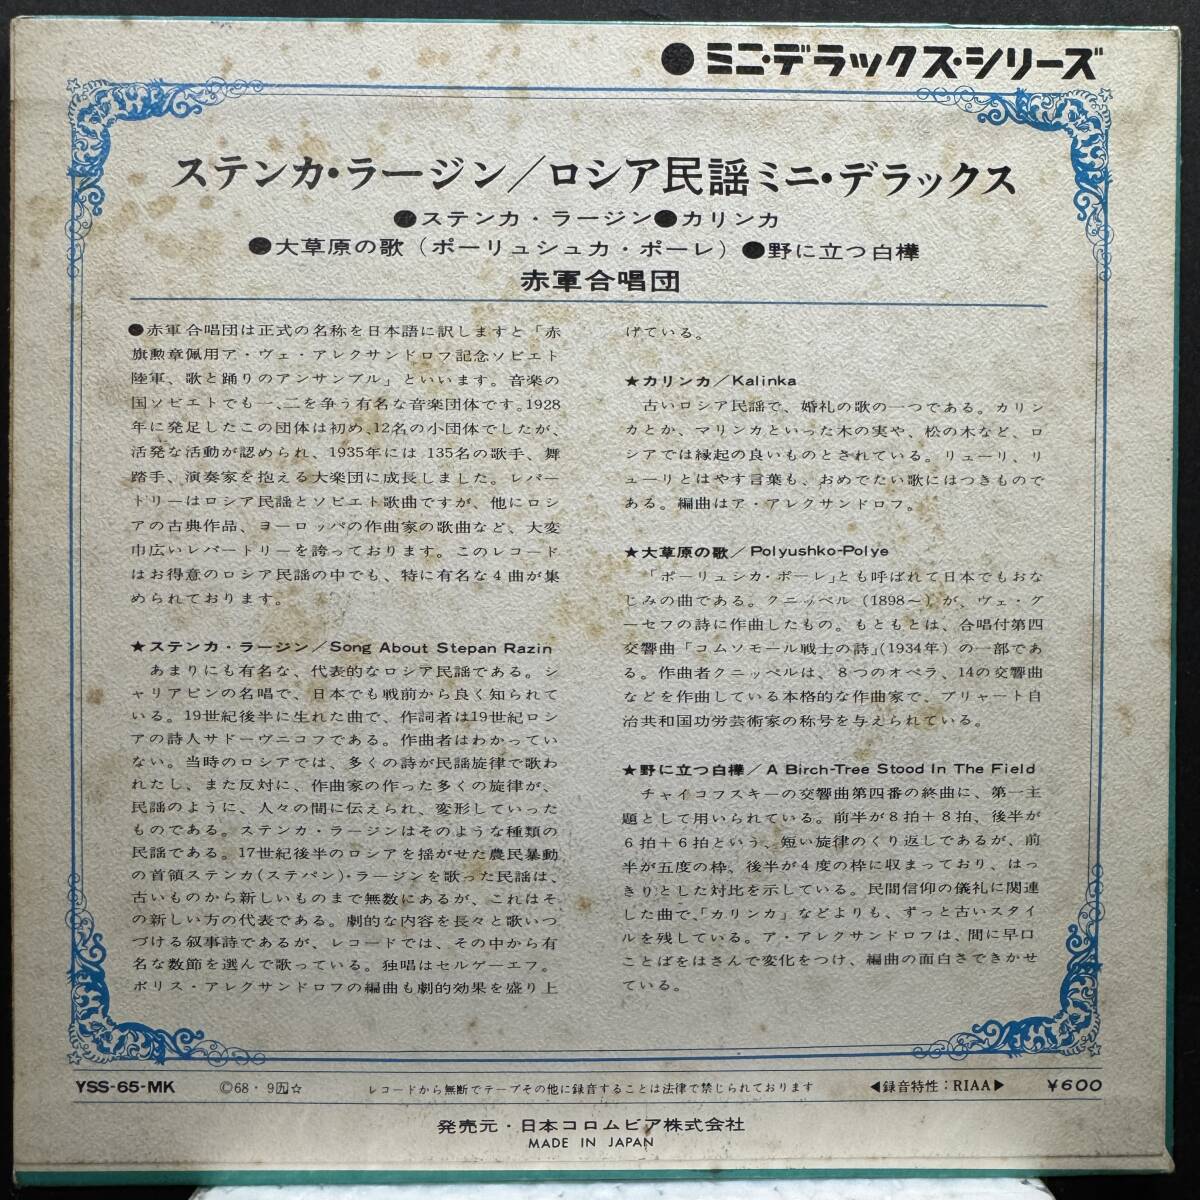 ●ミニ・デラックス・シリーズ
ステンカ・ラージン／ロシア民謡ミニ・デラックス
●ステンカ・ラージン●カリンカ
●大草原の歌（ポーリュシュカ・ポーレ）●野に立つ白樺
赤軍合唱団
●赤軍合唱団は正式の名称を日本語に訳しますと「赤
旗勲章佩用ア・ヴェ・アレクサンドロフ記念ソビエト
陸軍、歌と踊りのアンサンブル」といいます。音楽の
国ソビエトでも一、二を争う有名な音楽団体です。1928
年に発足したこの団体は初め、12名の小団体でしたが、
活発な活動が認められ、1935年には135名の歌手、舞
踏手、演奏家を抱える大楽団に成長しました。レパー
トリーはロシア民謡とソビエト歌曲ですが、他にロシ
アの古典作品、ヨーロッパの作曲家の歌曲など、大変
巾広いレパートリーを誇っております。このレコード
はお得意のロシア民謡の中でも、特に有名な4曲が集
められております。
★ステンカ・ラージン／Song About Stepan Razin
あまりにも有名な、代表的なロシア民謡である。シ
ャリアピンの名唱で、日本でも戦前から良く知られて
いる。19世紀後半に生れた曲で、作詞者は19世紀ロシ
アの詩人サドーヴニコフである。作曲者はわかってい
ない。当時のロシアでは、多くの詩が民謡旋律で歌わ
れたし、また反対に、作曲家の作った多くの旋律が、
民謡のように、人々の間に伝えられ、変形していった
ものである。ステンカ・ラージンはそのような種類の
民謡である。17世紀後半のロシアを揺がせた農民暴動
の首領ステンカ(ステパン)・ラージンを歌った民謡は、
古いものから新しいものまで無数にあるが、これはそ
の新しい方の代表である。劇的な内容を長々と歌いつ
づける叙事詩であるが、レコードでは、その中から有
名な数節を選んで歌っている。独唱はセルゲーエフ。
ボリス・アレクサンドロフの編曲も劇的効果を盛り上
げている。
★カリンカ／Kalinka
古いロシア民謡で、婚礼の歌の一つである。カリン
カとか、マリンカといった木の実や、松の木など、ロ
シアでは縁起の良いものとされている。リューリ、リ
ューリとはやす言葉も、おめでたい歌にはつきもので
ある。編曲はア・アレクサンドロフ。
★大草原の歌／Polyushko-Polye
「ポーリュシカ・ポーレ」とも呼ばれて日本でもおな
じみの曲である。クニッペル（1898～）が、ヴェ・グ
ーセフの詩に作曲したもの。もともとは、合唱付第四
交響曲「コムソモール戦士の詩」(1934年）の一部であ
る。作曲者クニッペルは、8つのオペラ、14の交響曲
などを作曲している本格的な作曲家で、ブリャート自
治共和国功労芸術家の称号を与えられている。
★野に立つ白樺／A Birch-Tree Stood In The Field
チャイコフスキーの交響曲第四番の終曲に、第一主
題として用いられている。前半が8拍＋8拍、後半が
6拍＋6拍という、短い旋律のくり返しであるが、前
半が五度の枠、後半が4度の枠に収まっており、はっ
きりとした対比を示している。民間信仰の儀礼に関連
した曲で、「カリンカ」などよりも、ずっと古いスタイ
ルを残している。ア・アレクサンドロフは、間に早口
ことばをはさんで変化をつけ、編曲の面白さできかせ
ている。
YSS-65-MK ©68・9 ☆ レコードから無断でテープその他に録音することは法律で禁じられております ◀録音特性：RIAA▶ ¥600
発売元・日本コロムビア株式会社
MADE IN JAPAN